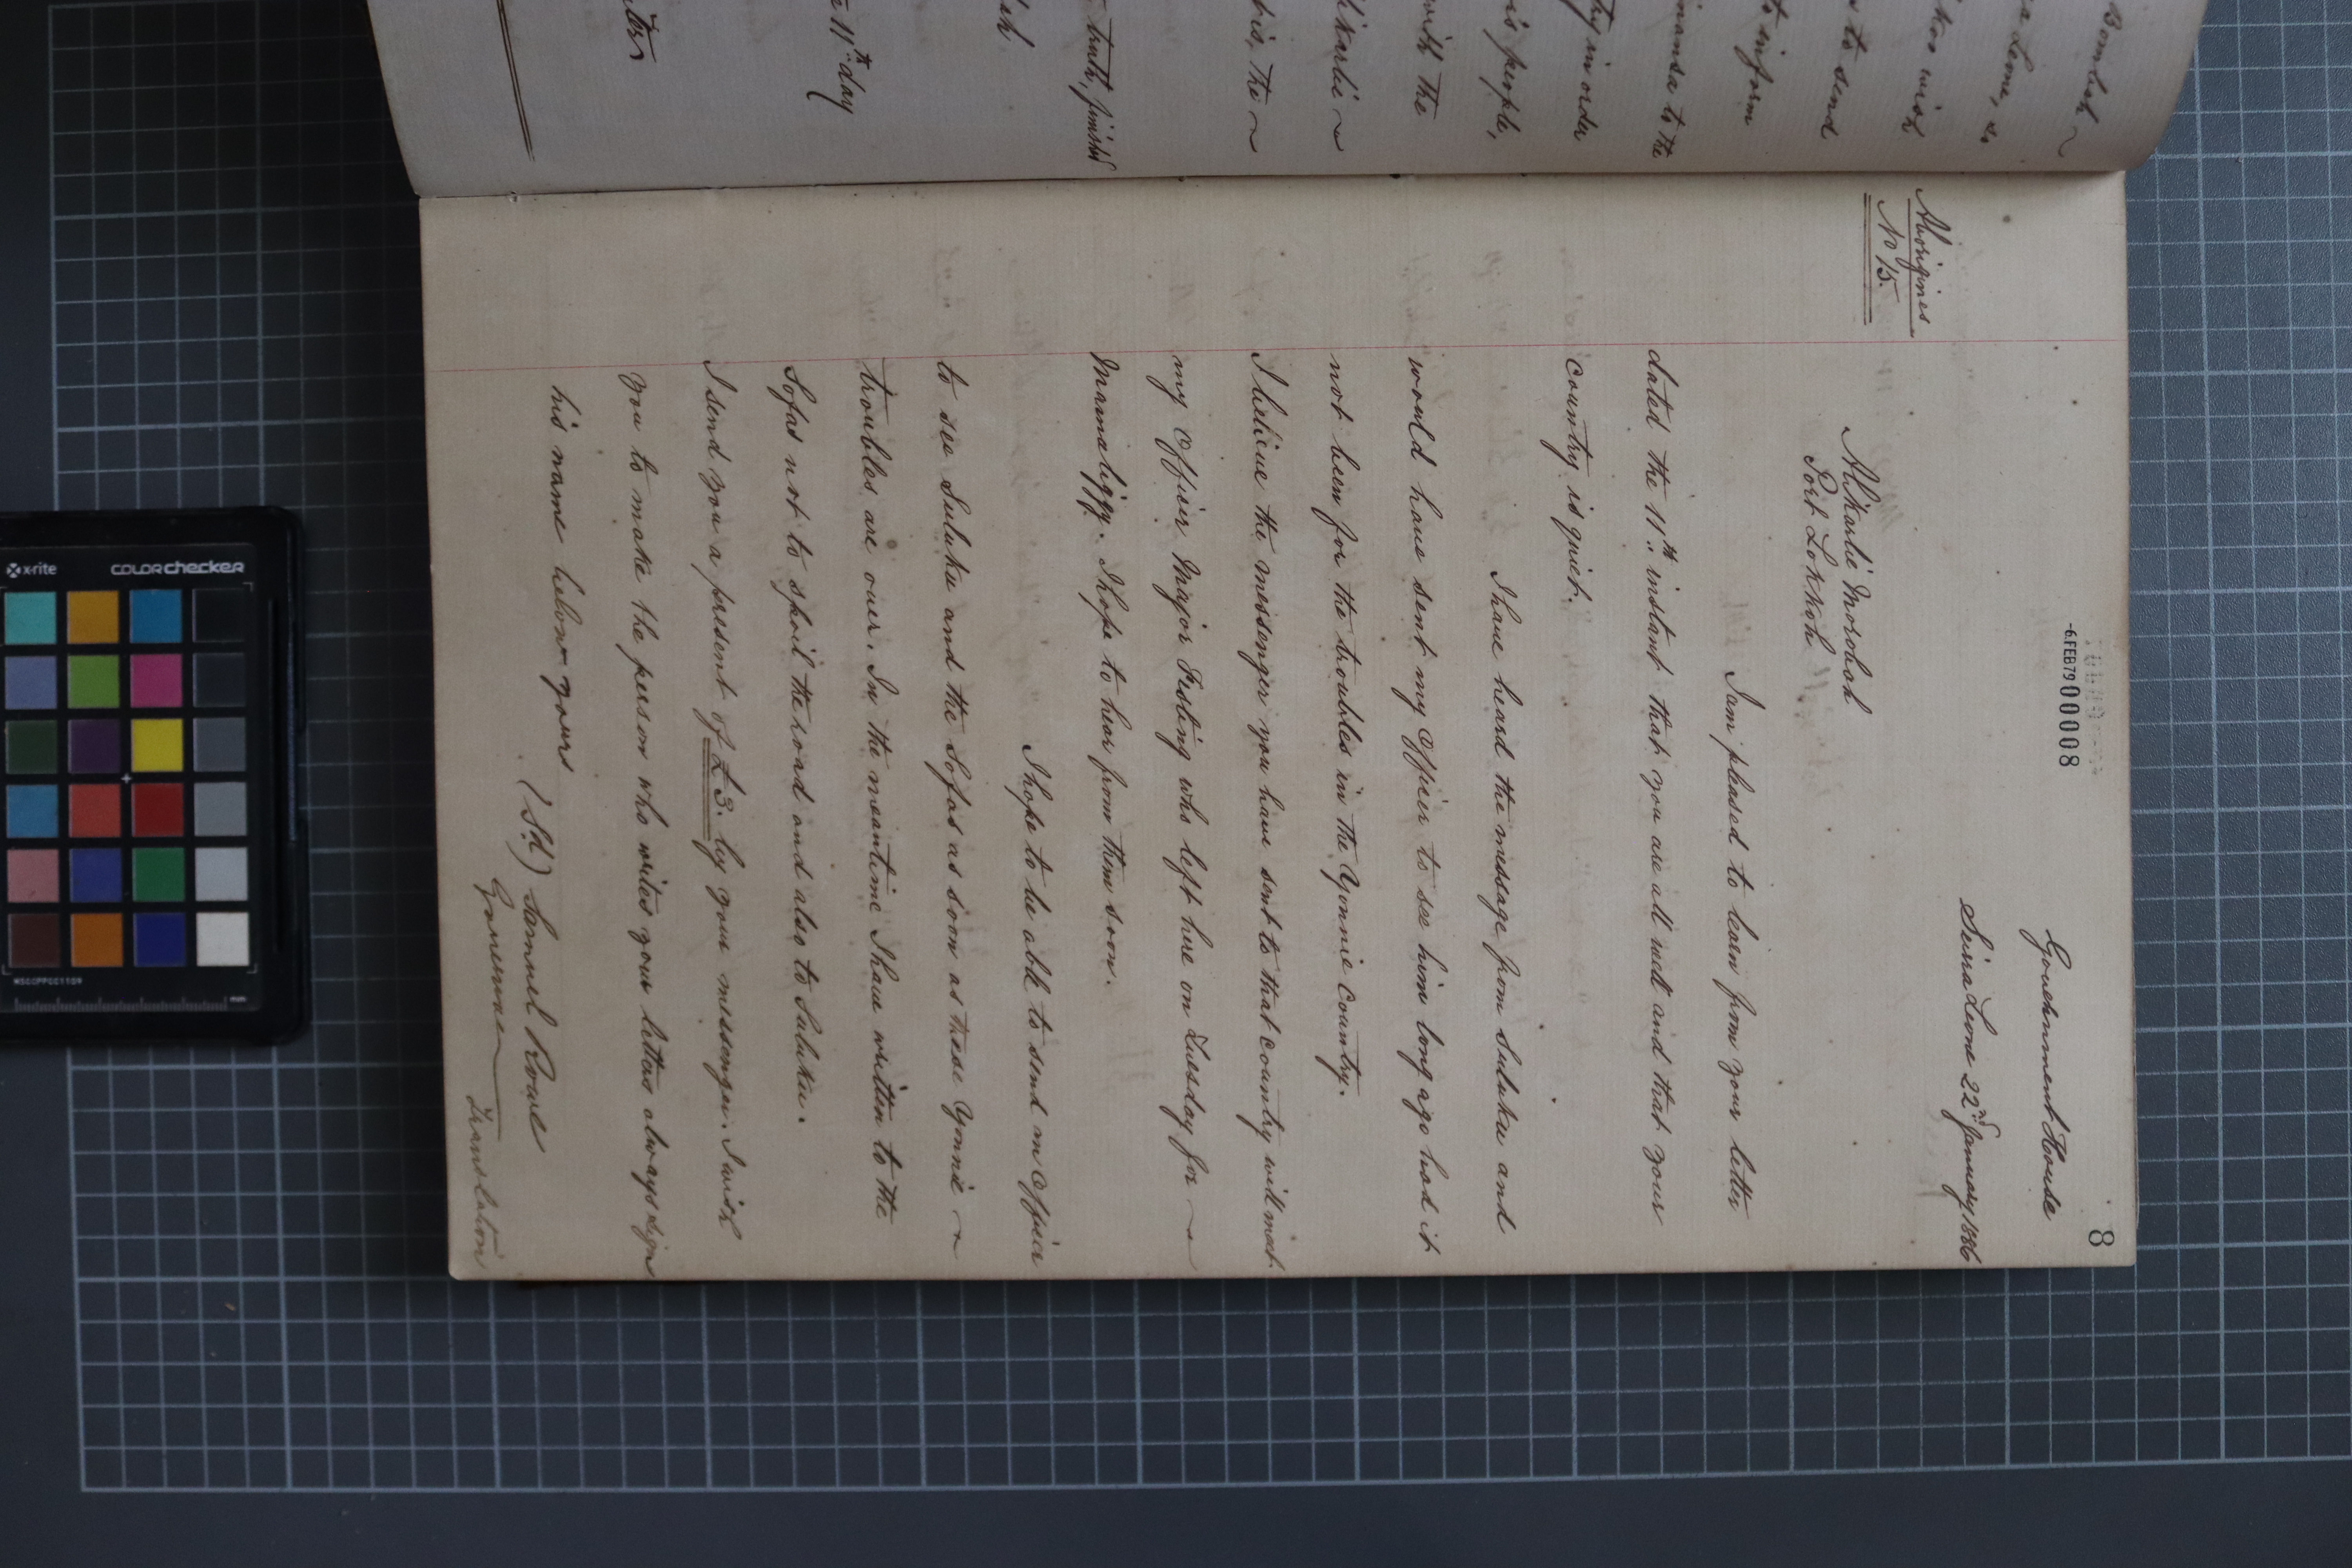 Bombah
a Leone, do
kes wish
s to send
to inform
inansa to the
try in order
is people,
with the
likarlie
bis, the
truth, finished
11th day
8
-6FEB79 00008
Government House
Sierra Leone 22nd January 1886
Aborigines
No 15.
Alikarlie Morobah
Port Lokkoh
I am pleased to learn from your letter
dated the 11th instant that you are all well and that your
country is quiet.
I have heard the message from Suluku and
would have sent my Officer to see him long ago had it
not been for the troubles in the Yonnie Country.
I believe the messenger you have sent to that country will meet
my Officer Major Festing who left here on Tuesday for
Mamaliggy. I hope to hear from them soon.
I hope to be able to send an Officer
to see Suluku and the Sofas as soon as these Yonnie
troubles are over. In the meantime I have written to the
Sofas not to spoil the road and also to Suluku.
I send you a present of £3. by your messenger. I wish
you to make the person who writes your letters always sign
his name below yours
(Sd) Samuel Rowe
Governor
Translation
x-rite
COLORchecker
MSCCPPCC1109
mm